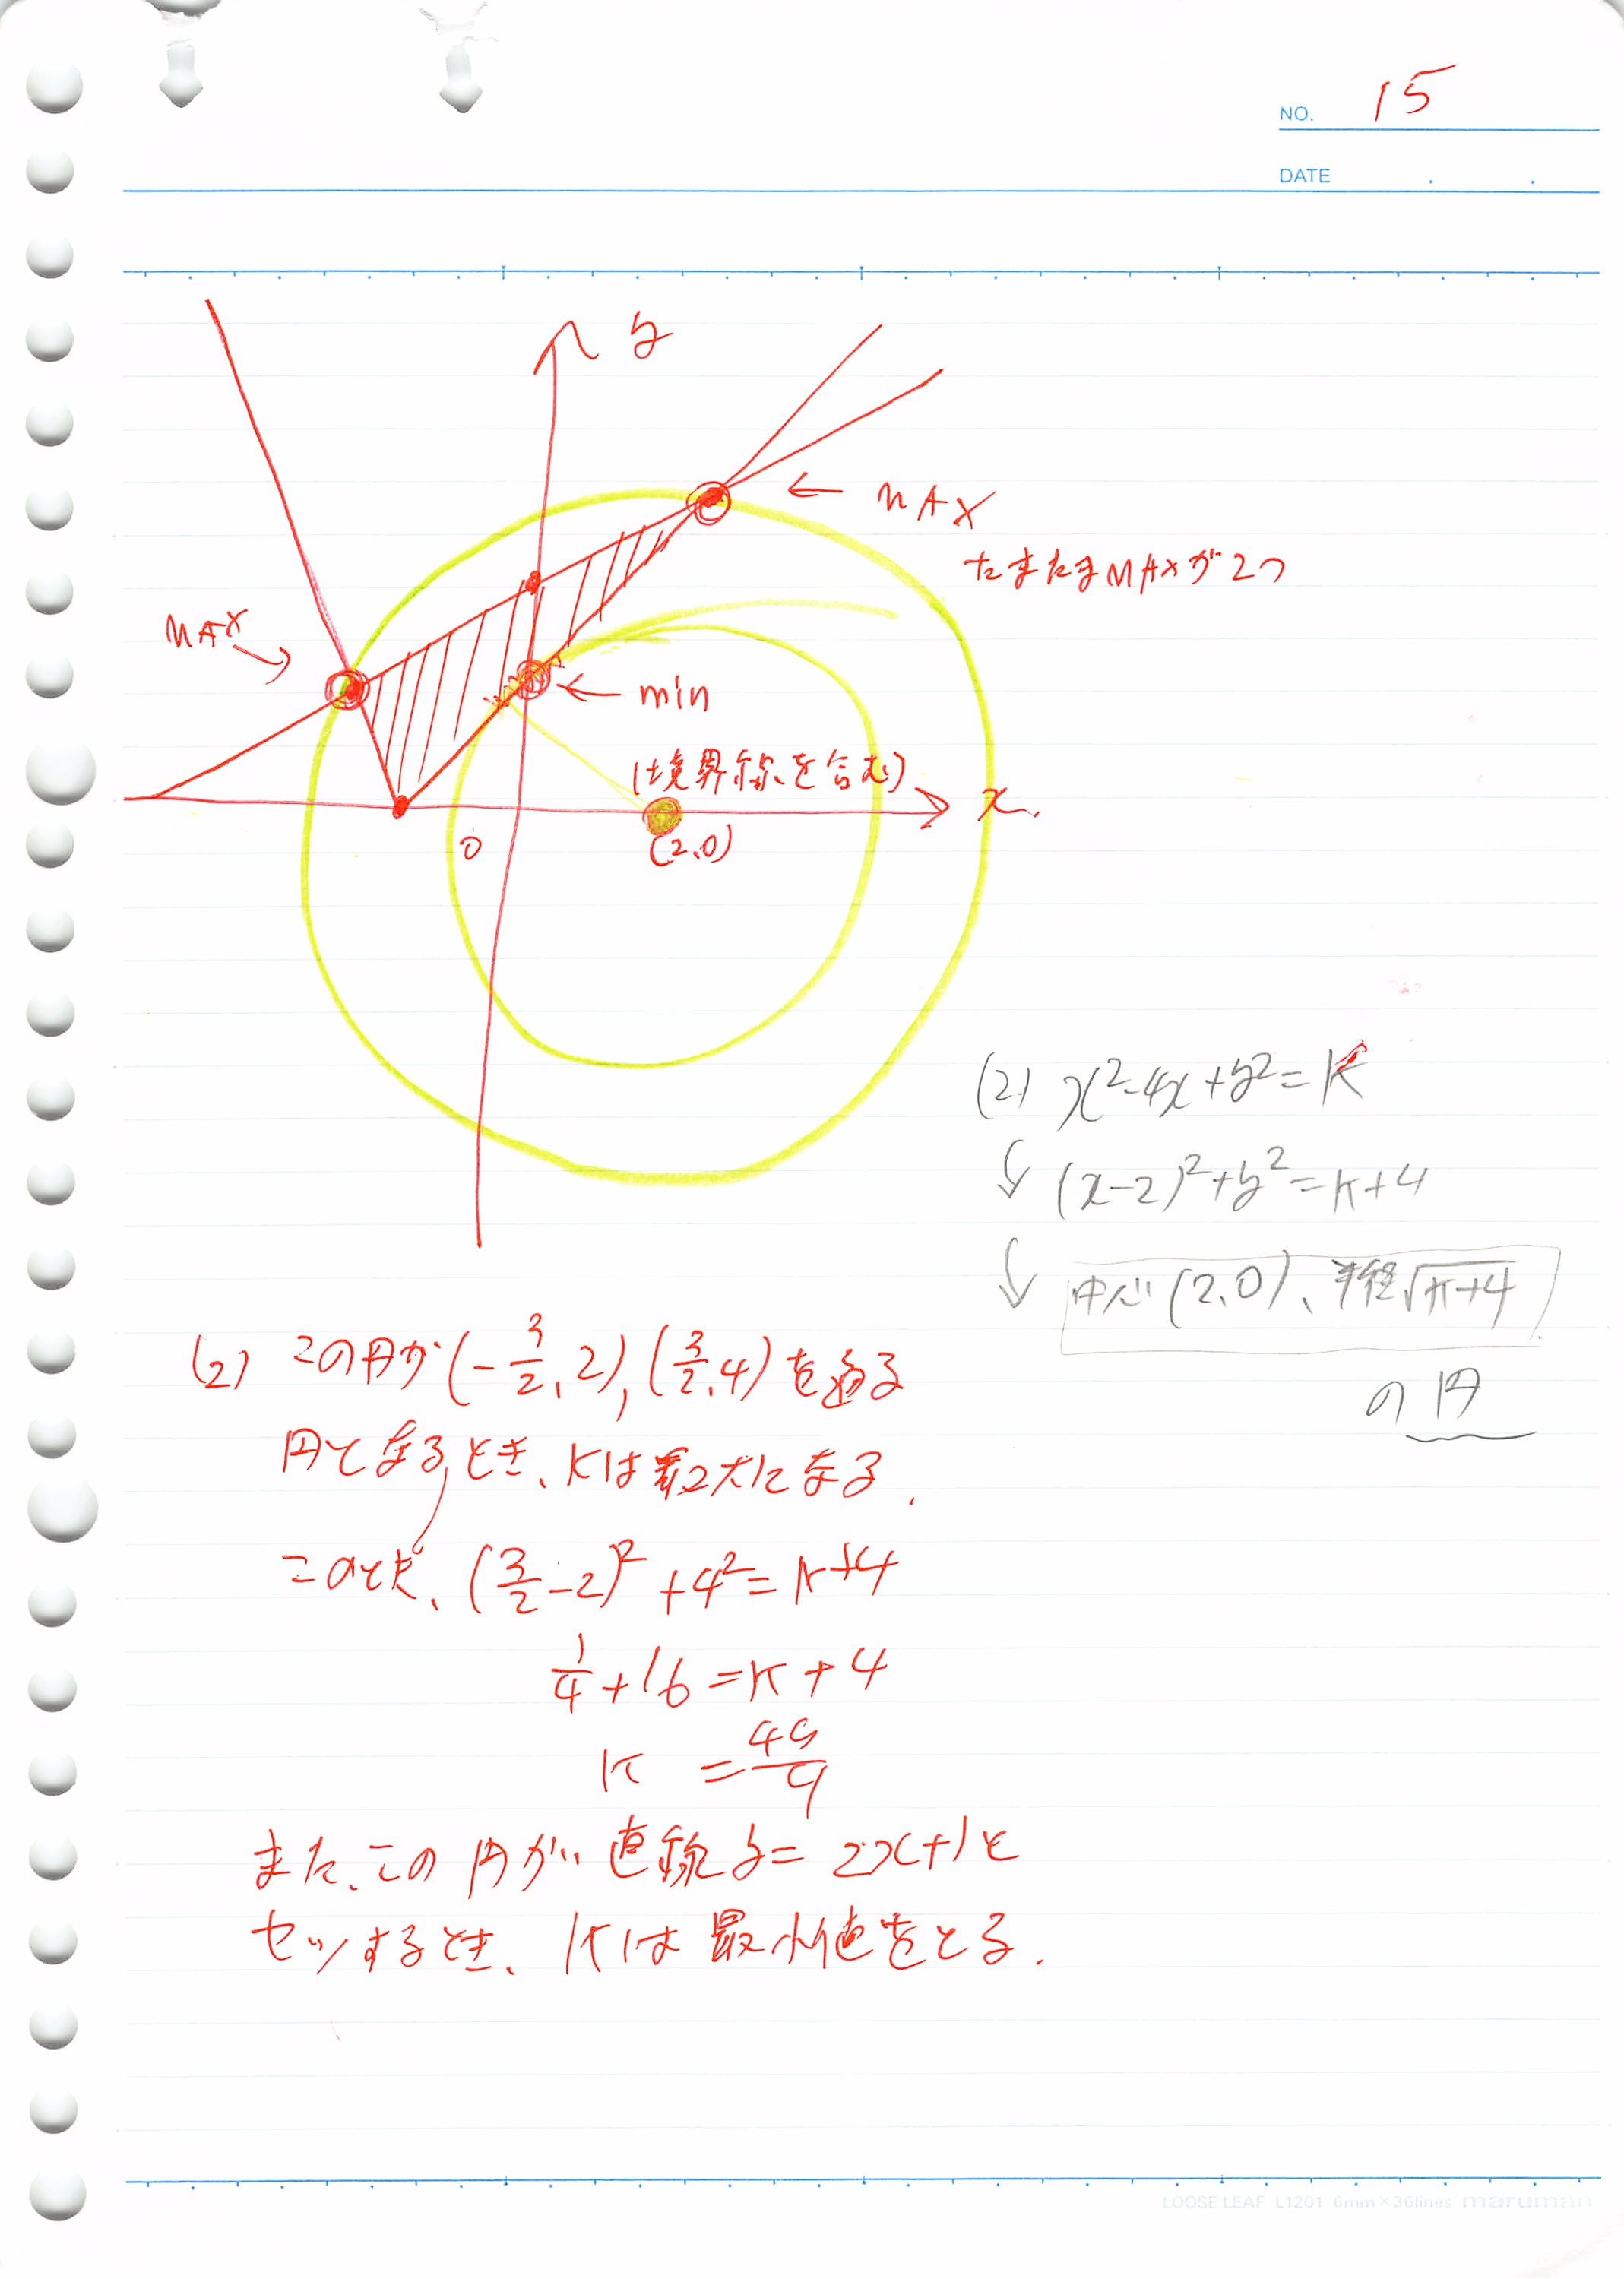 NO. 15
DATE
y
MAX
たまたまMAXが2つ
MAX
min
(境界線を含む)
x
0
(2,0)
(2) x²-4x+y²=k
(x-2)²+y²=k+4
中心(2,0)、半径√k+4
の円
(2) この円が(-3/2, 2), (3/2, 4)を通る
円となるとき、kは最大になる.
このとき、(3/2-2)²+4²=k+4
1/4+16=k+4
k =49/4
また、この円が直線y=2x+1と
セッするとき、kは最小値をとる.
LOOSE LEAF L1201 6mm×36lines maruman